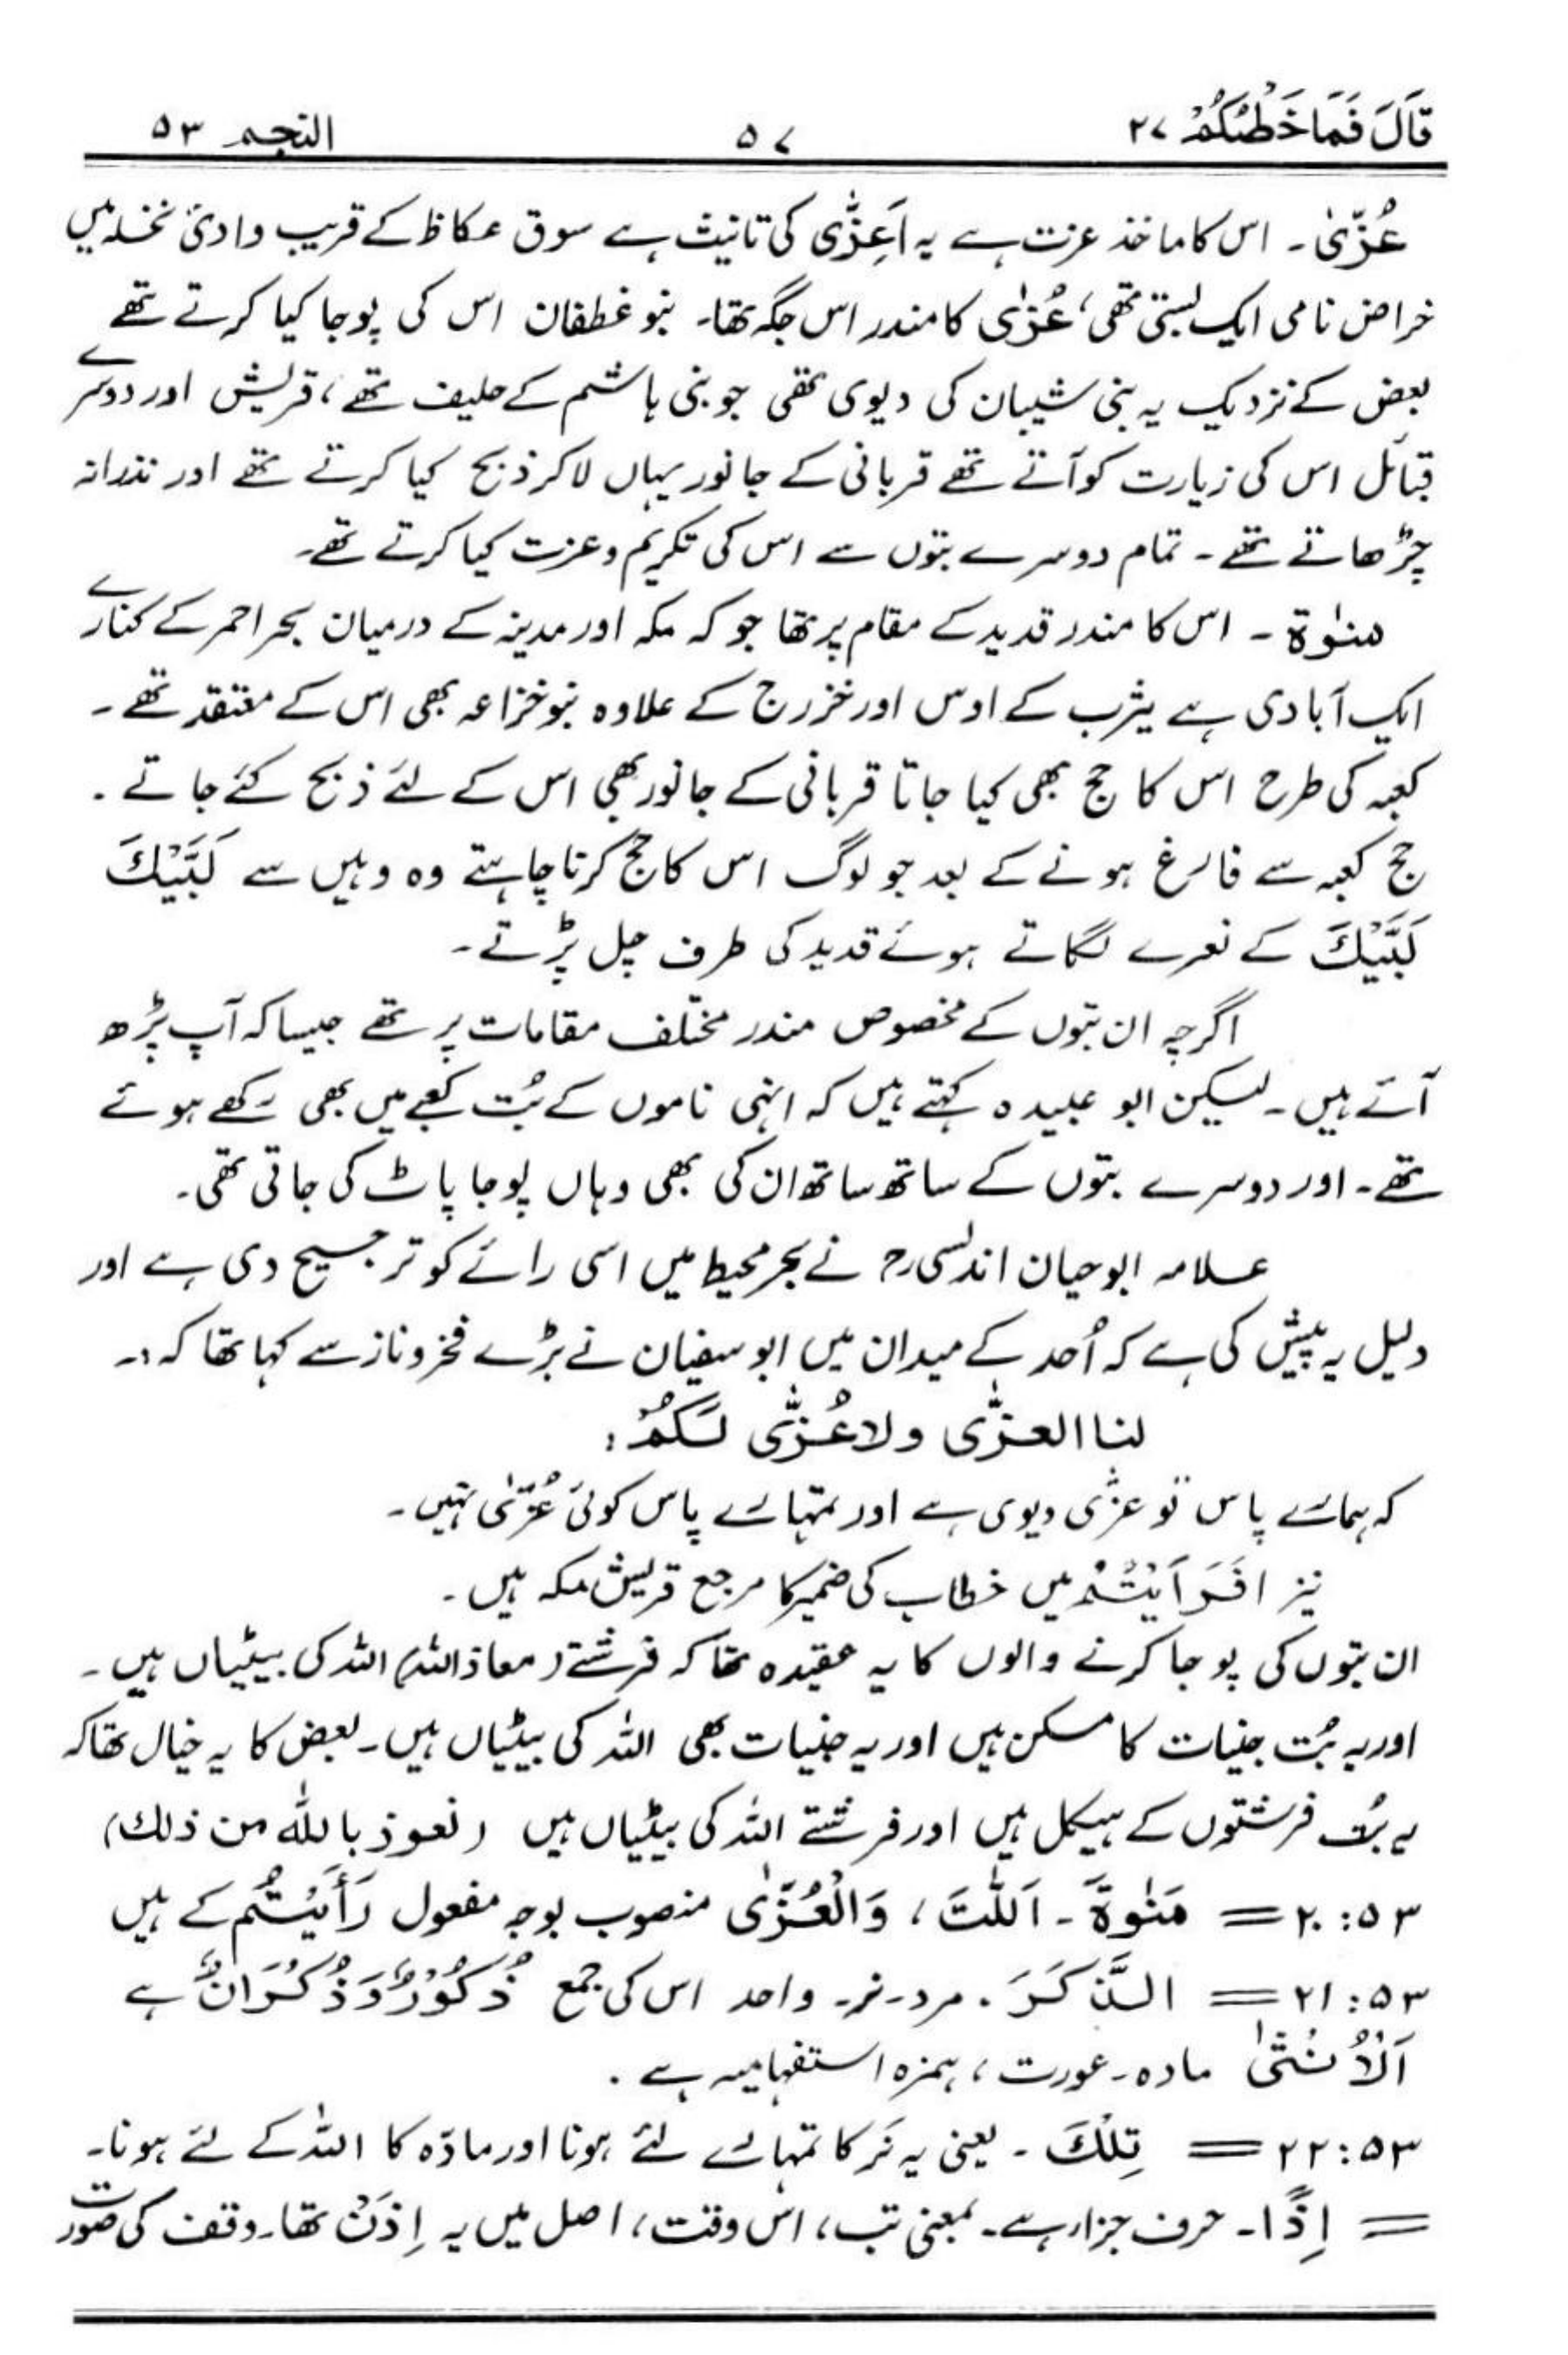 قَالَ فَمَا خَطْبُكُمْ ۲۷ ۵۷ النجم ۵۳
عُزّیٰ۔ اس کا ماخذ عزت ہے یہ اَعِزُّی کی تانیث ہے سوق عکاظ کے قریب وادیٔ نخلہ میں
خراض نامی ایک بستی تھی، عُزّٰی کا مندر اس جگہ تھا۔ بنو غطفان اس کی پوجا کیا کرتے تھے
بعض کے نزدیک یہ بنی شیبان کی دیوی تھی جو بنی ہاشم کے حلیف تھے، قریش اور دوسرے
قبائل اس کی زیارت کو آتے تھے قربانی کے جانور یہاں لا کر ذبح کیا کرتے تھے اور نذرانہ
چڑھاتے تھے۔ تمام دوسرے بتوں سے اس کی تکریم و عزت کیا کرتے تھے۔
منٰوۃ ۔ اس کا مندر قدید کے مقام پر تھا جو کہ مکہ اور مدینہ کے درمیان بحر احمر کے کنارے
ایک آبادی ہے یثرب کے اوس اور خزرج کے علاوہ بنو خزاعہ بھی اس کے معتقد تھے۔
کعبہ کی طرح اس کا حج بھی کیا جاتا قربانی کے جانور بھی اس کے لئے ذبح کئے جاتے۔
حج کعبہ سے فارغ ہونے کے بعد جو لوگ اس کا حج کرنا چاہتے وہ وہیں سے لَبَّیْكَ
لَبَّیْكَ کے نعرے لگاتے ہوئے قدید کی طرف چل پڑتے۔
اگرچہ ان بتوں کے مخصوص مندر مختلف مقامات پر تھے جیسا کہ آپ پڑھ
آئے ہیں۔ لیکن ابو عبیدہ کہتے ہیں کہ انہی ناموں کے بُت کعبے میں بھی رکھے ہوئے
تھے۔ اور دوسرے بتوں کے ساتھ ساتھ ان کی بھی وہاں پوجا پاٹ کی جاتی تھی۔
علامہ ابوحیان اندلسی رح نے بحر محیط میں اسی رائے کو ترجیح دی ہے اور
دلیل یہ پیش کی ہے کہ اُحد کے میدان میں ابو سفیان نے بڑے فخر و ناز سے کہا تھا کہ:۔
لنا العزّٰی ولا عُزّٰی لَکُمْ:
کہ ہمارے پاس تو عزّٰی دیوی ہے اور تمہارے پاس کوئی عُزّیٰ نہیں۔
نیز افَرَاَیْتُمْ میں خطاب کی ضمیر کا مرجع قریش مکہ ہیں۔
ان بتوں کی پوجا کرنے والوں کا یہ عقیدہ تھا کہ فرشتے (معاذ اللہ) اللہ کی بیٹیاں ہیں۔
اور یہ بُت جنیات کا مسکن ہیں اور یہ جنیات بھی اللہ کی بیٹیاں ہیں۔ بعض کا یہ خیال تھا کہ
یہ بُت فرشتوں کے ہیکل ہیں اور فرشتے اللہ کی بیٹیاں ہیں (نعوذ باللّٰہ من ذلك)
۵۳:۲۰ = مَنٰوةَ۔ اَللّٰتَ، وَالْعُزّٰی منصوب بوجہ مفعول رَأَیْتُم کے ہیں
۵۳:۲۱ = الذَّکَرَ۔ مرد۔ نر۔ واحد اس کی جمع ذُکُوْرٌ وَذُکْرَانٌ ہے
اَلْاُنْثٰی مادہ۔ عورت، ہمزہ استفہامیہ ہے۔
۵۳:۲۲ = تِلْكَ ۔ یعنی یہ نَر کا تمہارے لئے ہونا اور مادّہ کا اللہ کے لئے ہونا۔
= اِذًا۔ حرف جزاء ہے۔ بمعنی تب، اس وقت، اصل میں یہ اِذَنْ تھا۔ وقف کی صورت